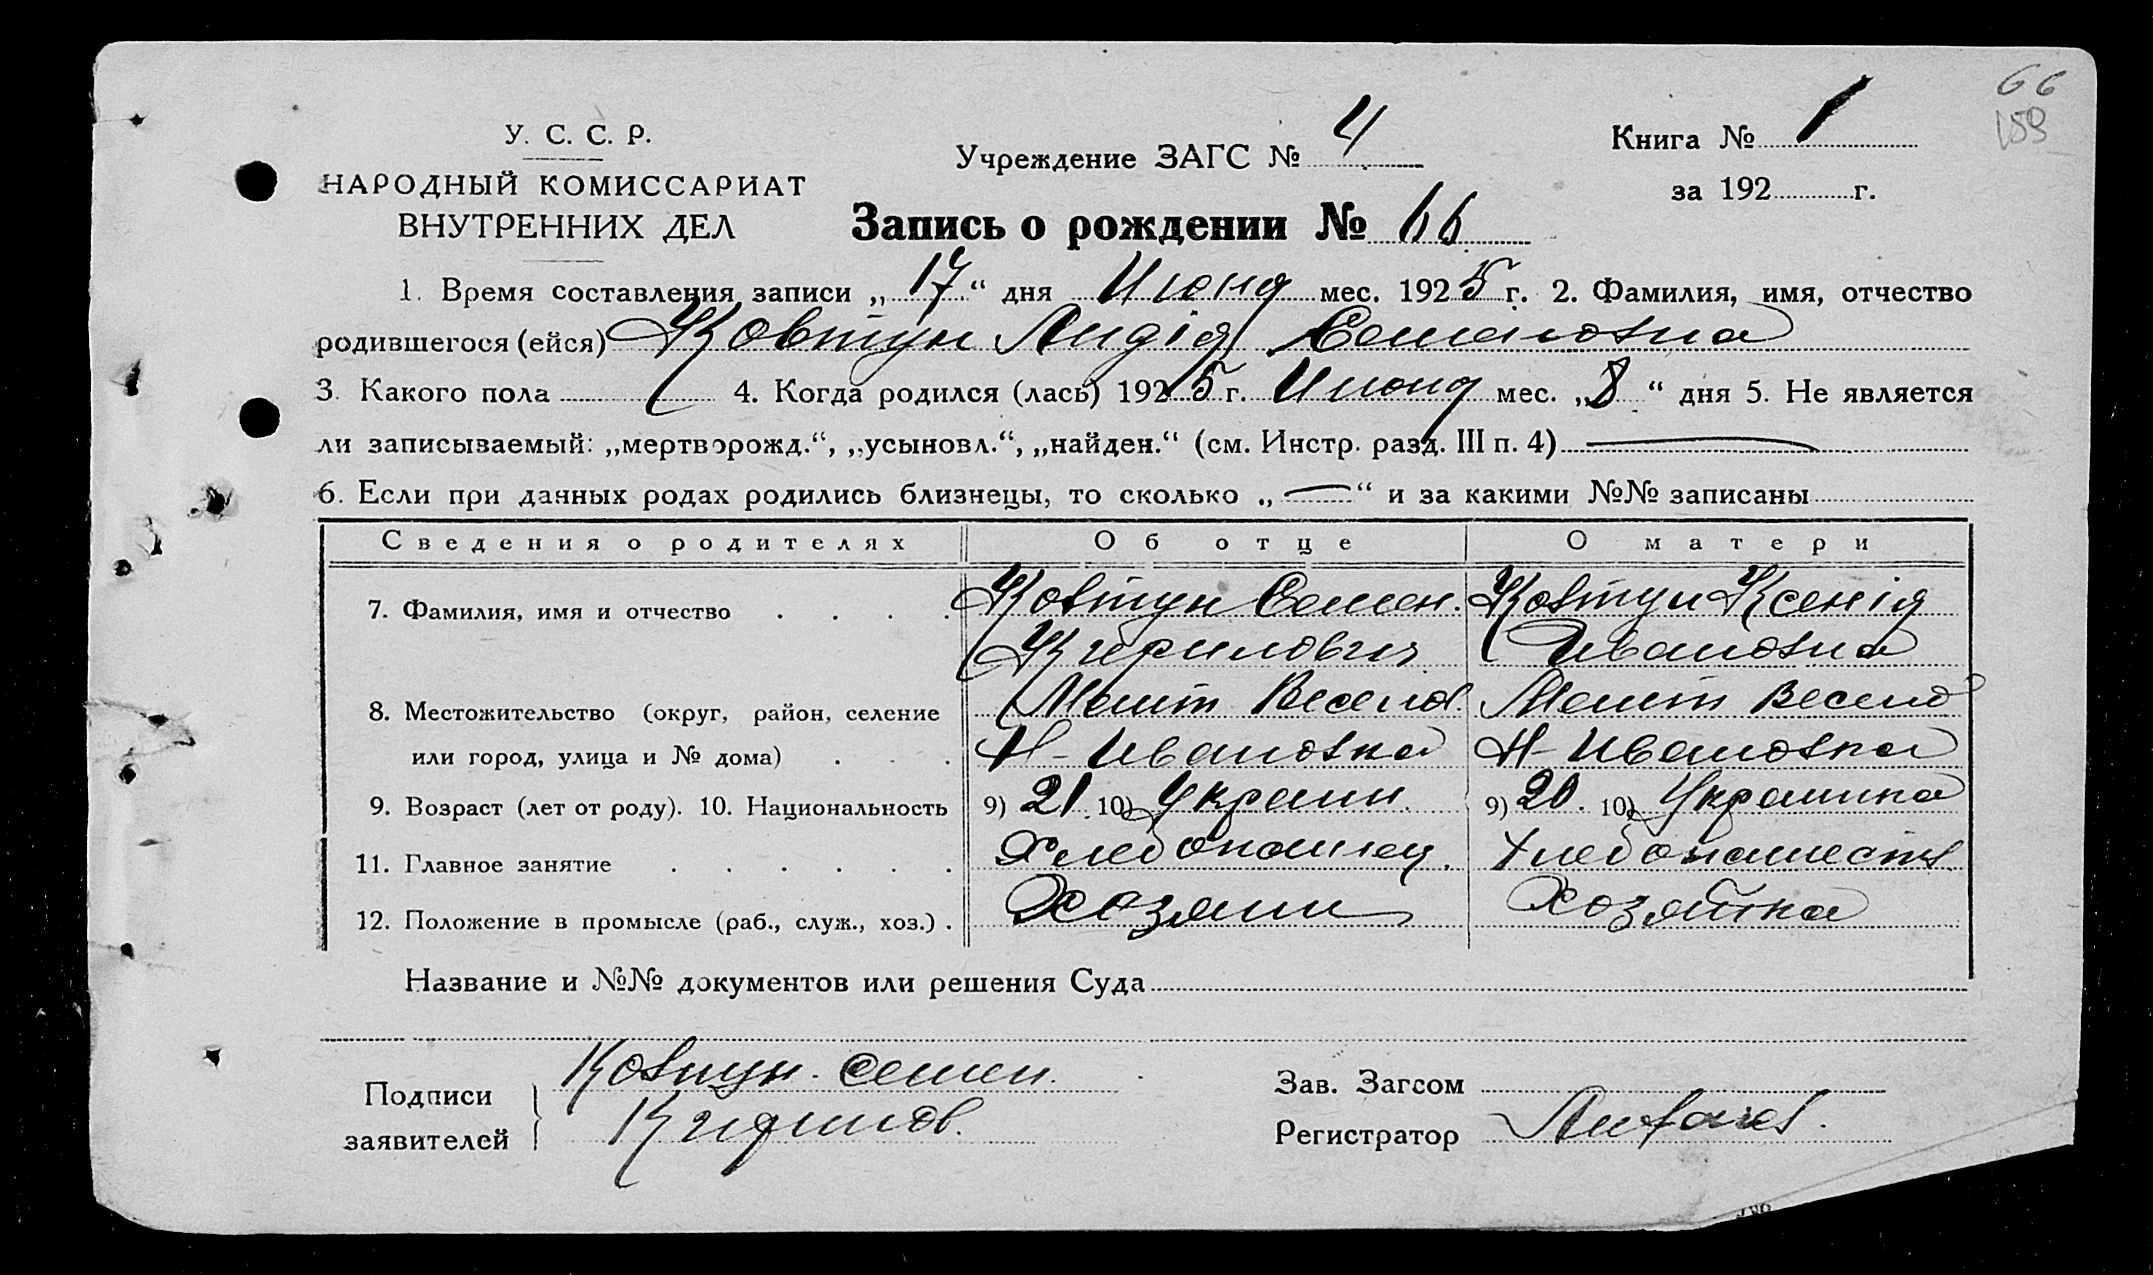 66
159
У. С. С. Р.
НАРОДНЫЙ КОМИССАРИАТ
ВНУТРЕННИХ ДЕЛ
Учреждение ЗАГС № 4
Книга № 1
за 192 г.
Запись о рождении № 66
1. Время составления записи „17“ дня Июня мес. 1925 г. 2. Фамилия, имя, отчество
родившегося (ейся) Ковтун Лидія Семеновна
3. Какого пола 4. Когда родился (лась) 1925 г. Июня мес. „8“ дня 5. Не является
ли записываемый: „мертворожд.“, „усыновл.“, „найден.“ (см. Инстр. разд. III п. 4) —
6. Если при данных родах родились близнецы, то сколько „—“ и за какими №№ записаны
Сведения о родителях Об отце О матери
7. Фамилия, имя и отчество . . . . Ковтун Семен. Ковтун Ксенія
Кирилович Ивановна
8. Местожительство (округ, район, селение Мелит Весело. Мелит Весело
или город, улица и № дома) . . . Н-Ивановка Н-Ивановка
9. Возраст (лет от роду). 10. Национальность 9) 21 10) Украин. 9) 20. 10) Украинка
11. Главное занятие . . . . . . Хлебопашец. Хлебопашеств
12. Положение в промысле (раб., служ., хоз.) . Хозяин Хозяйка
Название и №№ документов или решения Суда
Подписи
заявителей
Ковтун. Семен.
Кирилов.
Зав. Загсом
Регистратор